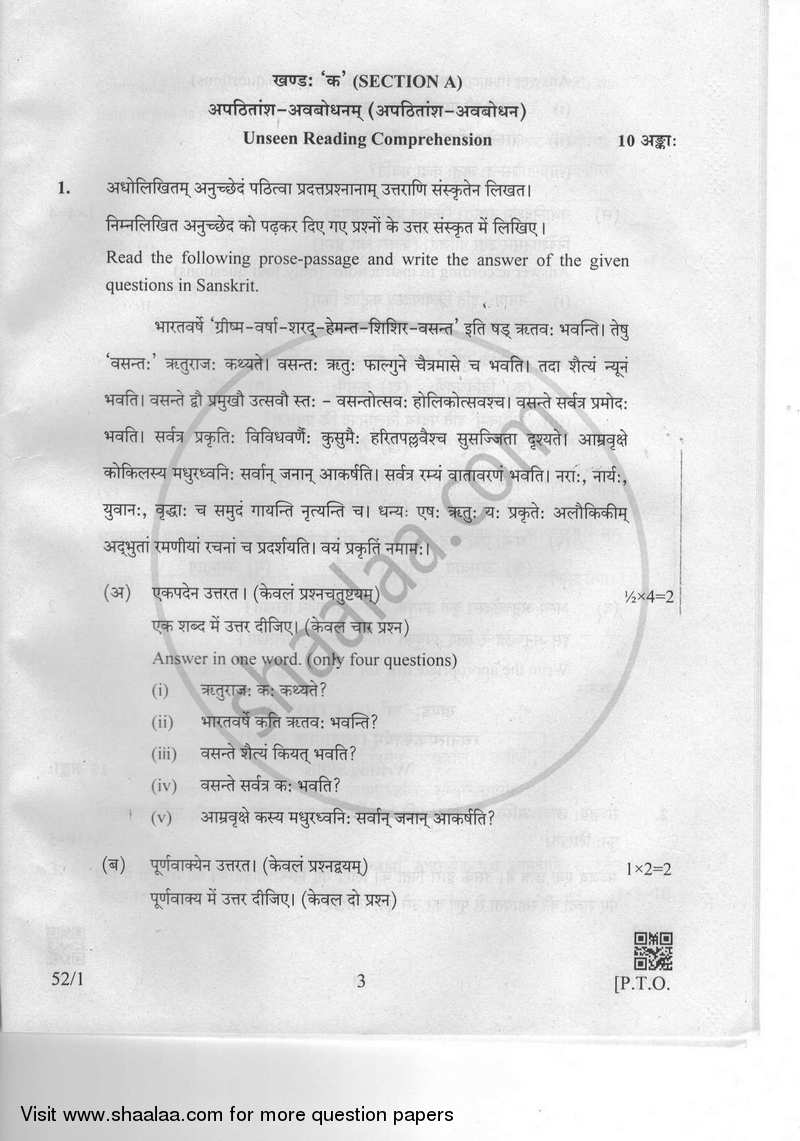 खण्ड: ‘क’ (SECTION A)
अपठितांश-अवबोधनम् (अपठितांश-अवबोधन)
Unseen Reading Comprehension 10 अङ्काः
1. अधोलिखितम् अनुच्छेदं पठित्वा प्रदत्तप्रश्नानाम् उत्तराणि संस्कृतेन लिखत।
निम्नलिखित अनुच्छेद को पढ़कर दिए गए प्रश्नों के उत्तर संस्कृत में लिखिए।
Read the following prose-passage and write the answer of the given
questions in Sanskrit.
भारतवर्षे ‘ग्रीष्म-वर्षा-शरद्-हेमन्त-शिशिर-वसन्त’ इति षड् ऋतवः भवन्ति। तेषु
‘वसन्तः’ ऋतुराजः कथ्यते। वसन्तः ऋतुः फाल्गुने चैत्रमासे च भवति। तदा शैत्यं न्यूनं
भवति। वसन्ते द्वौ प्रमुखौ उत्सवौ स्तः - वसन्तोत्सवः होलिकोत्सवश्च। वसन्ते सर्वत्र प्रमोदः
भवति। सर्वत्र प्रकृतिः विविधवर्णैः कुसुमैः हरितपल्लवैश्च सुसज्जिता दृश्यते। आम्रवृक्षे
कोकिलस्य मधुरध्वनिः सर्वान् जनान् आकर्षति। सर्वत्र रम्यं वातावरणं भवति। नराः, नार्यः,
युवानः, वृद्धाः च समुदं गायन्ति नृत्यन्ति च। धन्यः एषः ऋतुः यः प्रकृतेः अलौकिकीम्
अद्भुतां रमणीयां रचनां च प्रदर्शयति। वयं प्रकृतिं नमामः।
(अ) एकपदेन उत्तरत। (केवलं प्रश्नचतुष्टयम्) ½×4=2
एक शब्द में उत्तर दीजिए। (केवल चार प्रश्न)
Answer in one word. (only four questions)
(i) ऋतुराजः कः कथ्यते?
(ii) भारतवर्षे कति ऋतवः भवन्ति?
(iii) वसन्ते शैत्यं कियत् भवति?
(iv) वसन्ते सर्वत्र कः भवति?
(v) आम्रवृक्षे कस्य मधुरध्वनिः सर्वान् जनान् आकर्षति?
(ब) पूर्णवाक्येन उत्तरत। (केवलं प्रश्नद्वयम्) 1×2=2
पूर्णवाक्य में उत्तर दीजिए। (केवल दो प्रश्न)
52/1 3 [P.T.O.
shaalaa.com
Visit www.shaalaa.com for more question papers